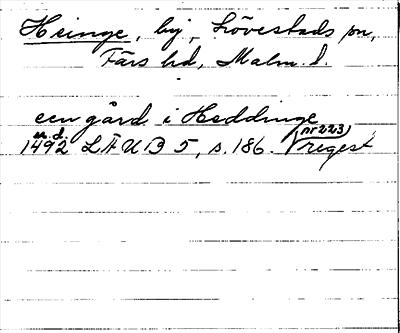 Heinge, by, Lövestads sn,
Färs hd, Malm. l.
een gård i Heddinge
u. d. (nr 223)
1492 LÄUB 5, s. 186. regest